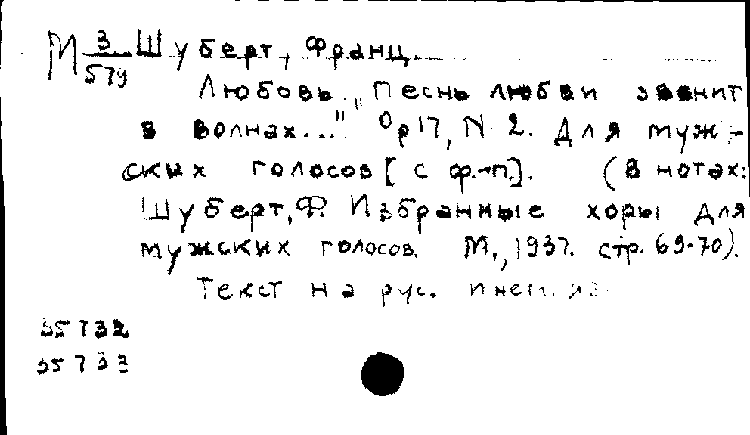 М 3/579 Шуберт, Франц.
Любовь. "Песнь любви звенит
в волнах..." Op 17, N 2. Для муж-
ских голосов [ с ф.-п.]. (В нотах:
Шуберт, Ф. Избранные хоры для
мужских голосов. М., 1937. стр. 69-70).
Текст на рус. и нем. яз.
35732
35733